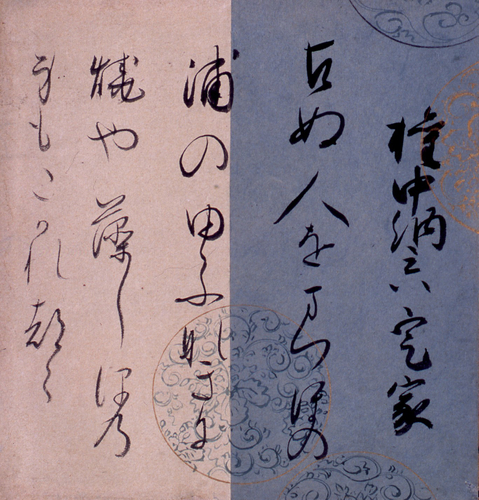 権中納言定家
こぬ人をまつほの
浦のゆふなぎに
焼や藻しほの
身もこがれつゝ